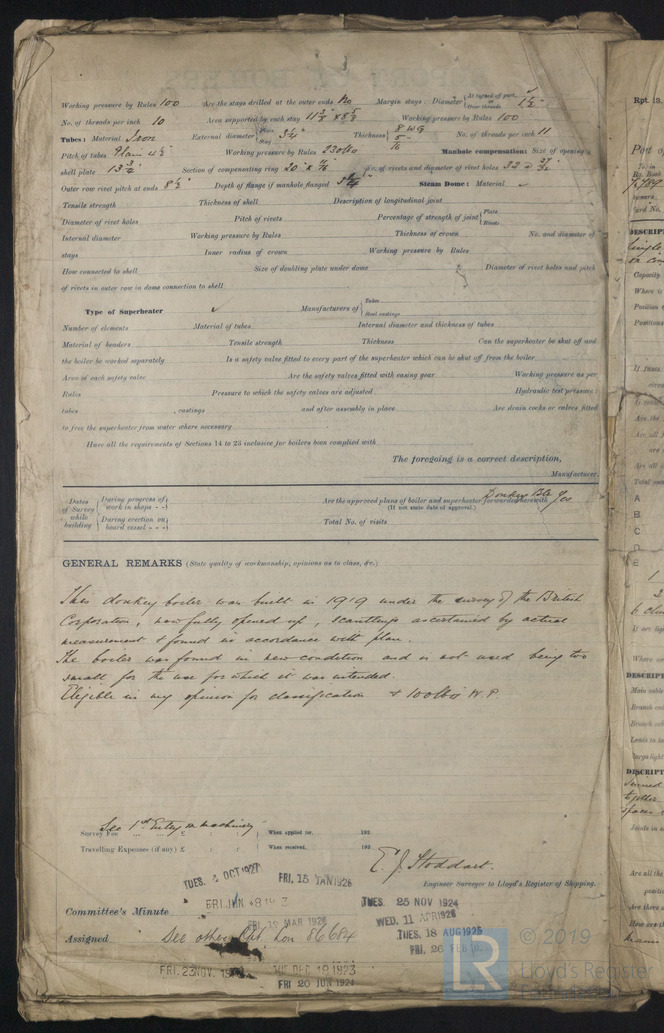 Working pressure by Rules 100 Are the stays drilled at the outer ends No Margin stays: Diameter At turned off part, or Over threads 1 1/2"
No. of threads per inch 10 Area supported by each stay 11 3/4" x 8 5/8" Working pressure by Rules 100
Tubes: Material Iron External diameter Plain Stay 3 1/4" Thickness 8 WG 5/16 No. of threads per inch 11
Pitch of tubes Plain 4 1/2" Working pressure by Rules 230 lbs Manhole compensation: Size of opening in
shell plate 13 3/4" Section of compensating ring No. of rivets and diameter of rivet holes 32
Outer row rivet pitch at ends 8 1/2" Depth of flange if manhole flanged Steam Dome: Material
Tensile strength Thickness of shell Description of longitudinal joint
Diameter of rivet holes Pitch of rivets Percentage of strength of joint Plate Rivets
Internal diameter Working pressure by Rules Thickness of crown No. and diameter of
stays Inner radius of crown Working pressure by Rules
How connected to shell Size of doubling plate under dome Diameter of rivet holes and pitch
of rivets in outer row in dome connection to shell
Type of Superheater Manufacturers of Tubes Steel castings
Number of elements Material of tubes Internal diameter and thickness of tubes
Material of headers Tensile strength Thickness Can the superheater be shut off and
the boiler be worked separately Is a safety valve fitted to every part of the superheater which can be shut off from the boiler
Area of each safety valve Are the safety valves fitted with easing gear Working pressure as per
Rules Pressure to which the safety valves are adjusted Hydraulic test pressure:
tubes , castings and after assembly in place Are drain cocks or valves fitted
to free the superheater from water where necessary
Have all the requirements of Sections 14 to 23 inclusive for boilers been complied with
The foregoing is a correct description,
Manufacturer.
Dates of Survey while building During progress of work in shops - - During erection on board vessel - - - Are the approved plans of boiler and superheater forwarded herewith Donkey Blr Yes
(If not state date of approval.)
Total No. of visits
GENERAL REMARKS (State quality of workmanship, opinions as to class, &c.)
This donkey boiler was built in 1919 under the survey of the British
Corporation, now fully opened up, scantlings ascertained by actual
measurement & found in accordance with plan.
The boiler was found in new condition and is not used being too
small for the use for which it was intended.
Eligible in my opinion for classification & 100 lbs W.P.
See 1st Entry on machinery
Survey Fee ... ... £ When applied for, 192
Travelling Expenses (if any) £ When received, 192
E. J. Stoddart.
Engineer Surveyor to Lloyd's Register of Shipping.
TUES. OCT 1927 FRI. 13 JAN 1928
FRI. JUN
FRI. MAR 1928
TUES. 25 NOV 1924
WED. 11 APR 1928
TUES. 18 AUG 1925
FRI. 26 FEB
Committee's Minute
Assigned See other Rpt. Lon 86684
FRI. 23 NOV. TUE DEC 18 1923
FRI 20 JUN 1924
© 2019
LR Lloyd's Register
Foundation
Rpt. 13.
Port of